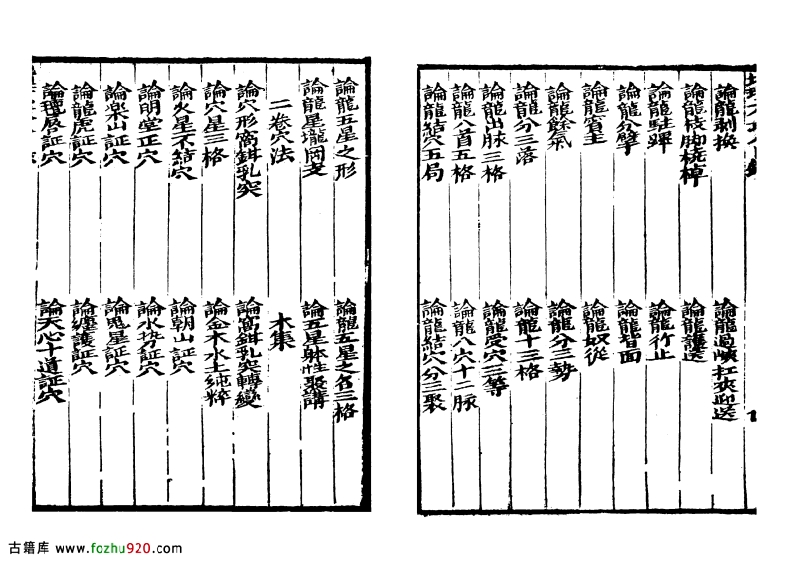 論龍剝換
論龍過峽扛夾迎送
論龍枝脚橈棹
論龍護送
論龍駐蹕
論龍行止
論龍分擘
論龍背面
論龍賓主
論龍奴從
論龍餘氣
論龍分三勢
論龍分三落
論龍十三格
論龍出脉三格
論龍受穴三等
論龍入首五格
論龍八穴十二脉
論龍結穴五局
論龍結穴分三聚
論龍五星之形
論龍五星之名三格
論龍星壠岡支
論五星躰性聚講
二卷穴法
木集
論穴形窩鉗乳突
論窩鉗乳突轉變
論穴星三格
論金木水土純粹
論火星不結穴
論朝山証穴
論明堂正穴
論水勢証穴
論樂山証穴
論鬼星証穴
論龍虎証穴
論纏護証穴
論唇証穴
論天心十道証穴
古籍库 www.fozhu920.com